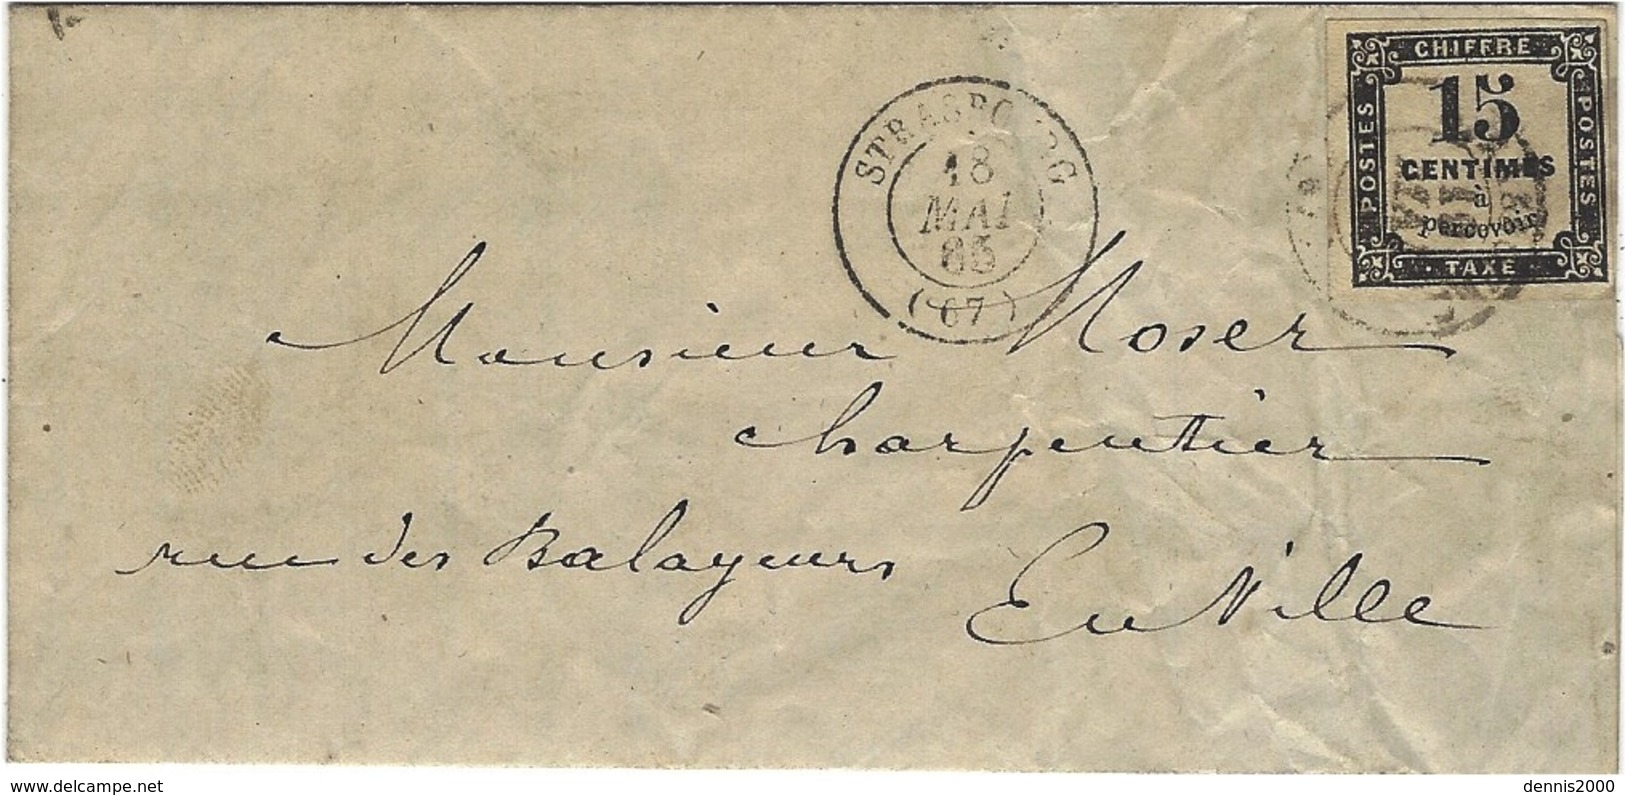 CHIFFRE
POSTES
15
CENTIMES
à
percevoir
POSTES
TAXE
STRASBOURG
18
MAI
65
(67)
Monsieur Moser
charpentier
rue des Balayeurs
En Ville
www.delcampe.net
dennis2000